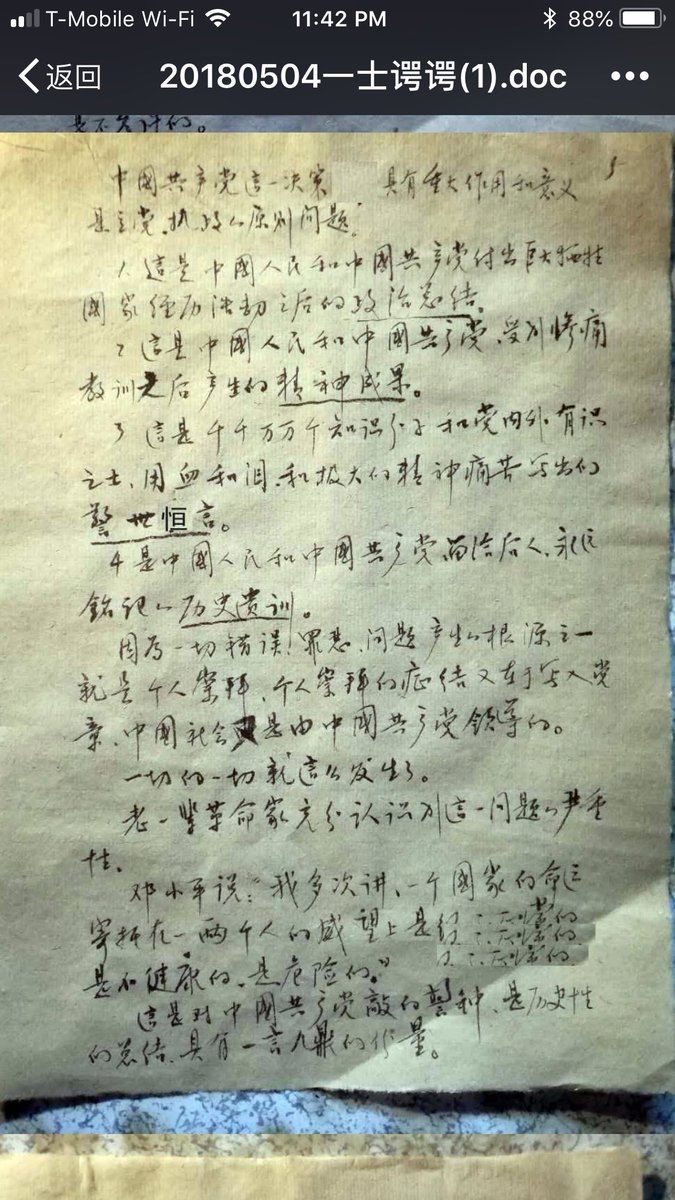 T-Mobile Wi-Fi 11:42 PM 88%
返回 20180504一士谔谔(1).doc •••
是不允许的。
5
中國共产党這一决策 具有重大作用和意义
是立党、执政的原则问题。
1. 這是中國人民和中國共产党付出巨大牺牲
國家经历浩劫之后的政治总结。
2 這是中國人民和中國共产党、受到惨痛
教训之后产生的精神成果。
3 這是千千万万个知识分子和党内外有识
之士、用血和泪、和极大的精神痛苦写出的
警世恒言。
4 是中國人民和中國共产党留给后人、永远
铭记的历史遗训。
因为一切错误、罪恶、问题产生的根源之一
就是个人崇拜、个人崇拜的症结又在于写入党
章、中國社会是由中國共产党領导的。
一切的一切就這么发生了。
老一辈革命家充分认识到這一问题的严重
性。
邓小平说："我多次讲、一个國家的命运
寄托在一两个人的威望上是
是不健康的、是危险的。"
這是对中國共产党敲的警钟、是历史性
的总结、具有一言九鼎的份量。